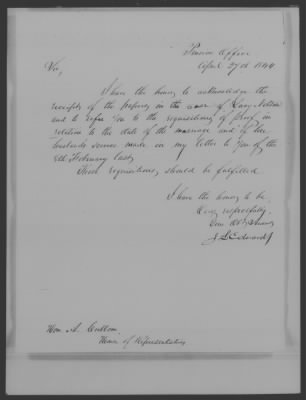 Pension Office
April 27th 1844
Sir,
I have the honor to acknowledge the
receipt of the papers in the case of Lucy Nelson
and to refer you to the requisitions of proof in
relation to the date of the marriage and of her
husband's service made in my letter to you of the
8th February last.
These requisitions should be fulfilled.
I have the honor to be
Very respectfully,
J L Edwards
Hon. A. Cullom.
House of Representatives